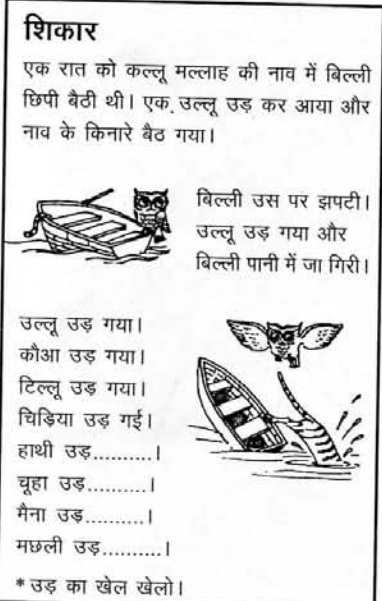 शिकार
एक रात को कल्लू मल्लाह की नाव में बिल्ली
छिपी बैठी थी। एक उल्लू उड़ कर आया और
नाव के किनारे बैठ गया।
बिल्ली उस पर झपटी।
उल्लू उड़ गया और
बिल्ली पानी में जा गिरी।
उल्लू उड़ गया।
कौआ उड़ गया।
टिल्लू उड़ गया।
चिड़िया उड़ गई।
हाथी उड़..........।
चूहा उड़..........।
मैना उड़..........।
मछली उड़..........।
* उड़ का खेल खेलो।